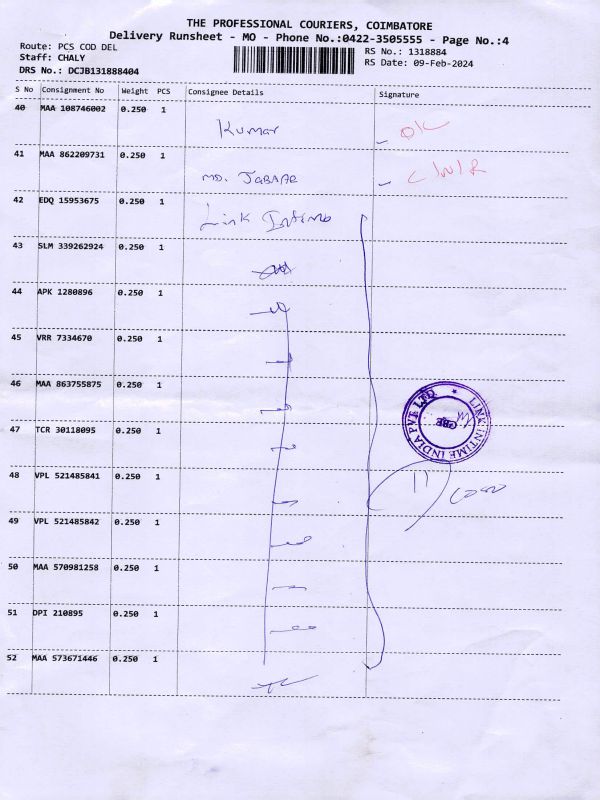 THE PROFESSIONAL COURIERS, COIMBATORE
Delivery Runsheet - MO - Phone No.:0422-3505555 - Page No.:4
Route: PCS COD DEL
Staff: CHALY
DRS No.: DCJB131888404
RS No.: 1318884
RS Date: 09-Feb-2024
S No Consignment No Weight PCS Consignee Details Signature
40 MAA 108746002 0.250 1 Kumar OK
41 MAA 862209731 0.250 1 MD. JABAAR
42 EDQ 15953675 0.250 1 Link Intime
43 SLM 339262924 0.250 1
44 APK 1280896 0.250 1
45 VRR 7334670 0.250 1
46 MAA 863755875 0.250 1
47 TCR 30118095 0.250 1
LINK INTIME INDIA PVT LTD
CBE
48 VPL 521485841 0.250 1
49 VPL 521485842 0.250 1
50 MAA 570981258 0.250 1
51 DPI 210895 0.250 1
52 MAA 573671446 0.250 1